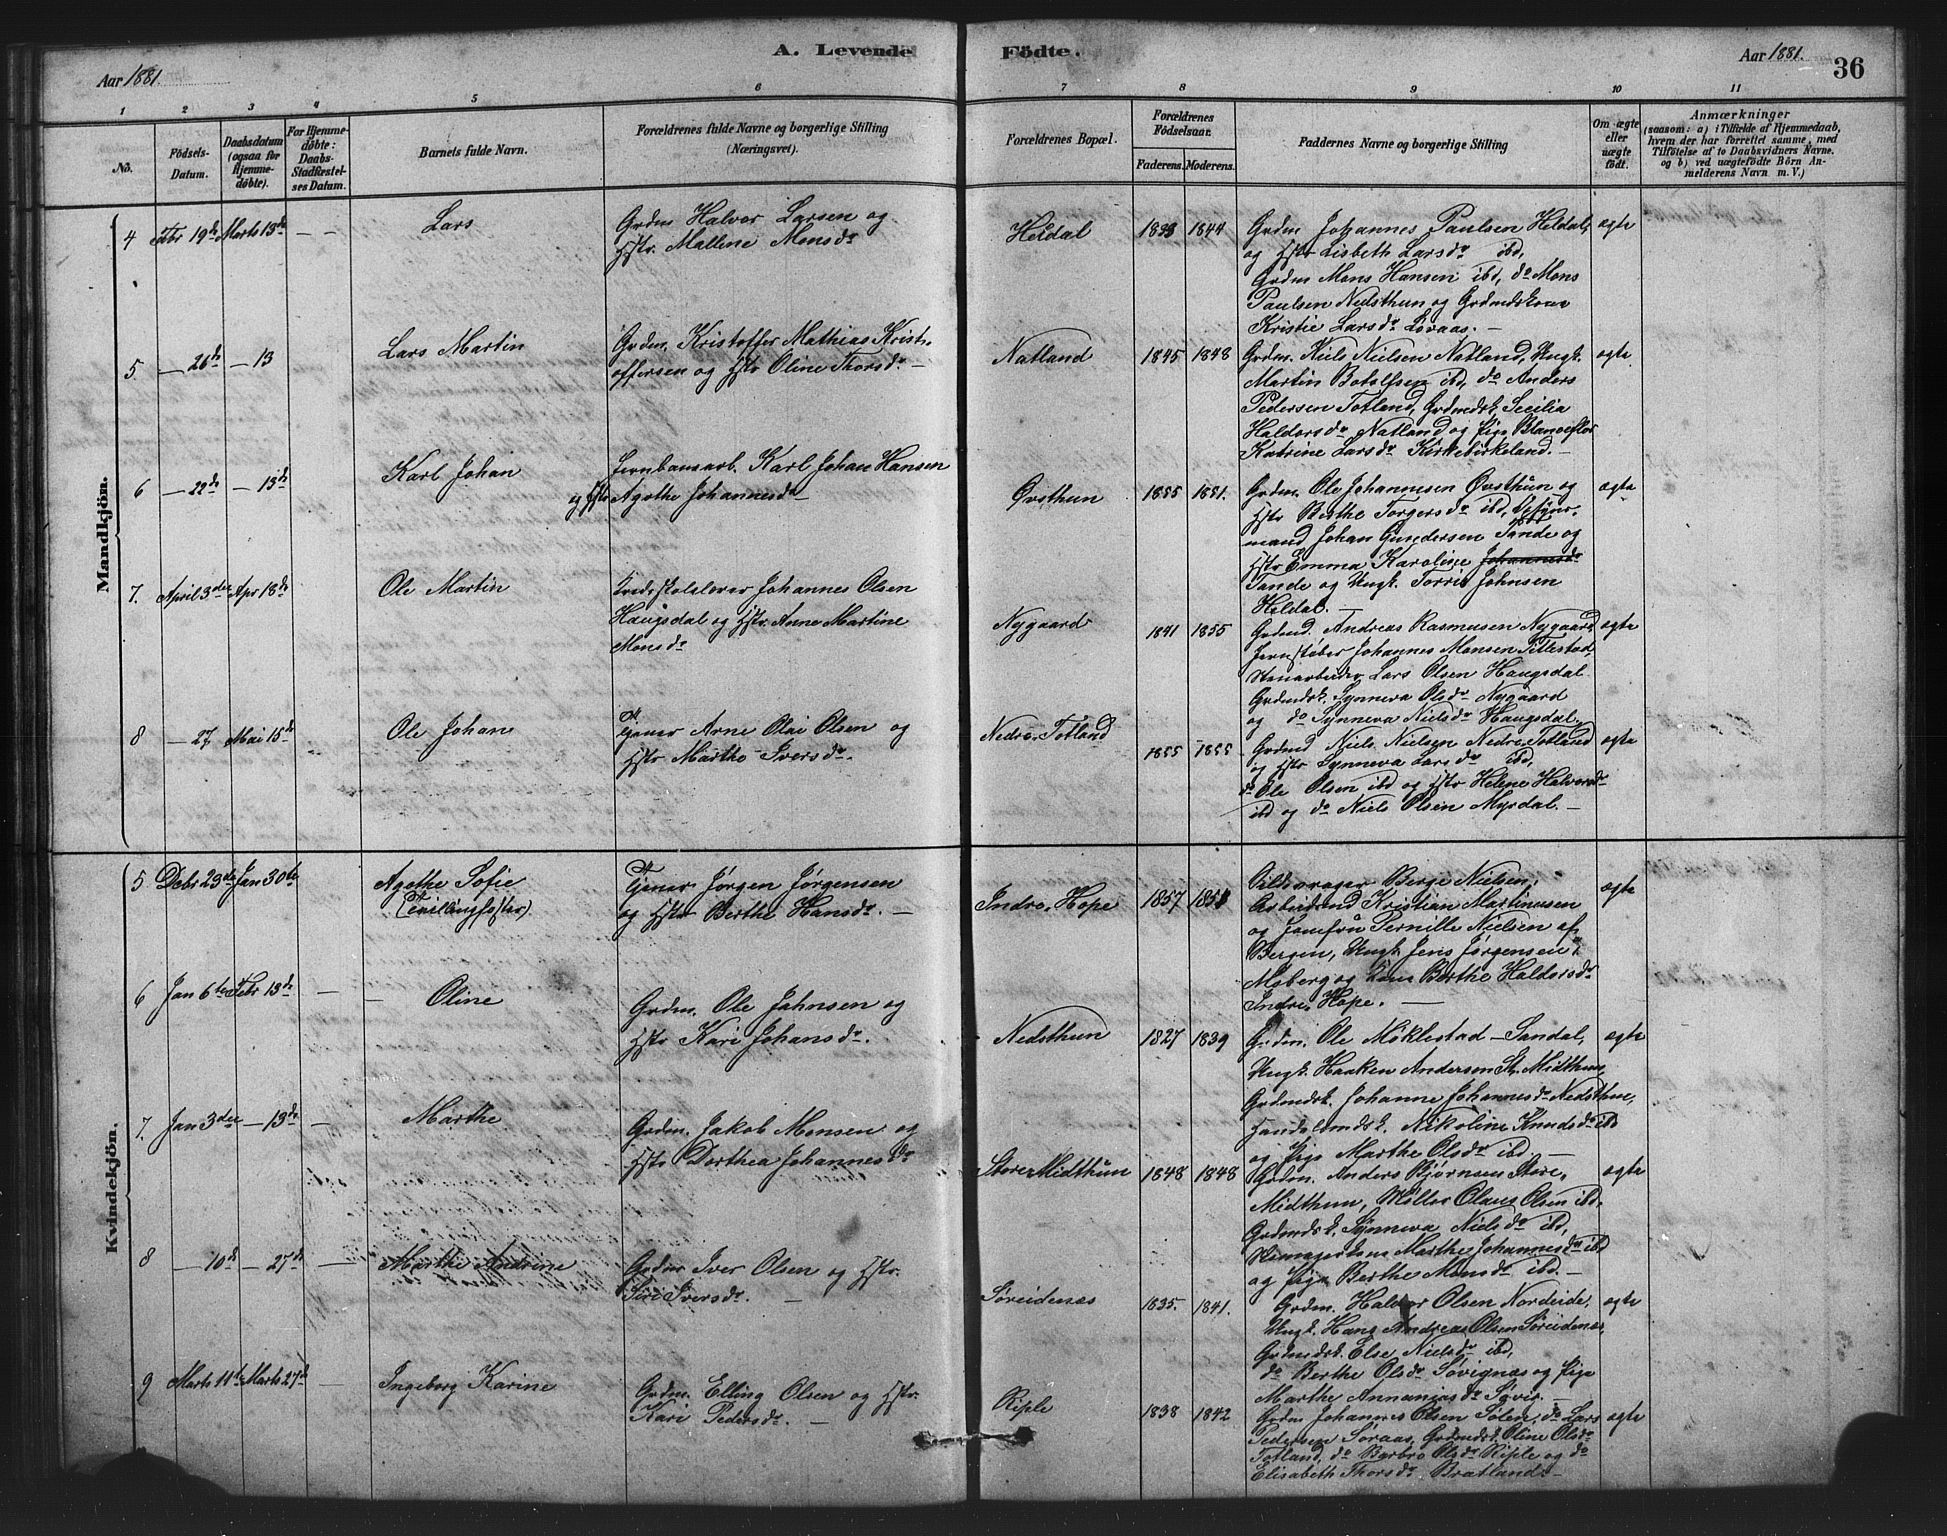 A. Levende Födte.
Aar 1881.
Aar 1881.
36
1 2 3 4 5 6 7 8 9 10 11
No.
Födsels-
Datum.
Daabsdatum
(ogsaa for
Hjemme-
döbte).
For Hjemme-
döbte:
Daabs-
Stadfæstel-
ses Datum.
Barnets fulde Navn.
Forældrenes fulde Navne og borgerlige Stilling
(Næringsvei).
Forældrenes Bopæl.
Forældrenes
Födselsaar.
Faderens. Moderens.
Faddernes Navne og borgerlige Stilling
Om ægte
eller
uægte
födt.
Anmærkninger
(saasom: a) i Tilfælde af Hjemmedaab,
hvem der har forrettet samme, med
Tilföielse af to Daabsvidners Navne.
og b) ved uægtefödte Börn An-
melderens Navn m. V.)
Mandkjön.
4 Febr 19de Marts 13de — —
Lars
Grdm Halvor Larsen og
Hstr. Mallene Monsdr
Heldal
1833 1844
Grdm Johannes Paulsen Heldal,
og Hstr Lisbeth Larsdr ibd,
Grdm Mons Hansen ibd, do Mons
Paulsen Nedsthun og Grdmdskone
Kristie Larsdr Söraas. —
ægte
5. — 26de — 13
Lars Martin
Grdm. Kristoffer Mathias Krist-
offersen og Hstr Oline Thorsdr —
Natland
1845 1848
Grdm. Niels Nielsen Natland, Ungk.
Martin Botolfsen ibd, do Anders
Pedersen Totland, Grdmdsk. Secilia
Haldorsdr Natland og Pige Blanceflor
Katrine Larsdr Kirkebirkeland. —
ægte
6 — 22de — 13de
Karl Johan
Jernbanearb. Karl Johan Hansen
og Hstr Agathe Johannesdr —
Øvsthun
1855 1851.
Grdm. Ole Johannesen Øvsthun og
Hstr Berthe Torgersdr ibd,
mand Johan Gundersen Tande og
Hstr Emma Karoline Johannesdr
Tande og Ungk. Torris Johnsen
Heldal. —
ægte
7. April 3die Apr 18de
Ole Martin
Kredsskolelærer Johannes Olsen
Haugsdal og Hstr. Anne Martine
Monsdr
Nygaard
1841 1855
Grdmd. Andreas Rasmusen Nygaard,
Jernstøber Johannes Monsen Titlestad,
Stenarbeider Lars Olsen Haugsdal
Grdmdsk. Synneva Olsdr Nygaard
og do Synneva Nielsdr Haugsdal.
ægte
8 — 27 Mai 15de
Ole Johan
Garver Arne Olai Olsen og
Hstr Marthe Iversdr.
Nedre Totland
1855 1855
Grdmd Niels Nielsen Nedre Totland
og Hstr Synneva Larsdr ibd,
do Ole Olsen ibd og Hstr Helene Halvorsdr
ibd og do Niels Olsen Myrdal. —
ægte
Kvindekjön.
5 Debr 23de Jan 30te
Agathe Sofie
(Tvillingsøster)
Garver Jørgen Jørgensen
og Hstr Berthe Hansdr. —
Indre Hope
1857
Sildevrager Berge Nielsen,
Arbeidsmd Kristian Martinusen
og Jomfru Pernille Nielsen af
Bergen, Ungk. Jens Jørgensen
Moberg og Kone Berthe Haldorsdr
Indre Hope. —
ægte
6 Jan 6te Febr 13de — —
Oline
Grdm. Ole Jahnsen og
Hstr Kari Johansdr.
Nedsthun
1827 1839
Grdm. Ole Møklestad — Sandal,
Ungk. Haaken Andersen St. Midthun,
Grdmdsk. Johanne Johannesdr Nedsthun,
Handelsmdsk. Nikoline Knudsdr ibd
og Pige Marthe Olsdr ibd —
ægte
7. Jan 3die — 13de —
Marthe
Grdm. Jakob Monsen og
Hstr Dorthea Johannesdr
Store Midthun
1848 1848
Grdm. Anders Bjørnsen Store
Midthun, Møller Olaus Olsen ibd,
Grdmdsk. Synneva Nielsdr ibd,
Marthe Johannesdr ibd
og Pige Berthe Monsdr ibd. —
ægte
8 — 10de — 27de —
Marthe Andrine
Grdm Iver Olsen og Hstr.
Siri Iversdr. —
Søreidenæs
1835. 1841.
Grdm. Haldor Olsen Nordeide,
Ungk. Hans Andreas Olsen Søreidenæs,
Grdmdsk. Else Nielsdr ibd,
do Berthe Olsdr Søvignæs og Pige
Marthe Annaniasdr Søvig. —
ægte
9 Marts 11te Marts 27de —
Ingeborg Karine
Grdm. Elling Olsen og Hstr.
Kari Pedersdr. —
Riple
1838 1842
Grdm Johannes Olsen Sølen, do Lars
Pedersen Søraas, Grdmdsk. Oline Olsdr
Totland, do Barbro Olsdr Riple og do
Elisabeth Thorsdr Bratland. —
ægte